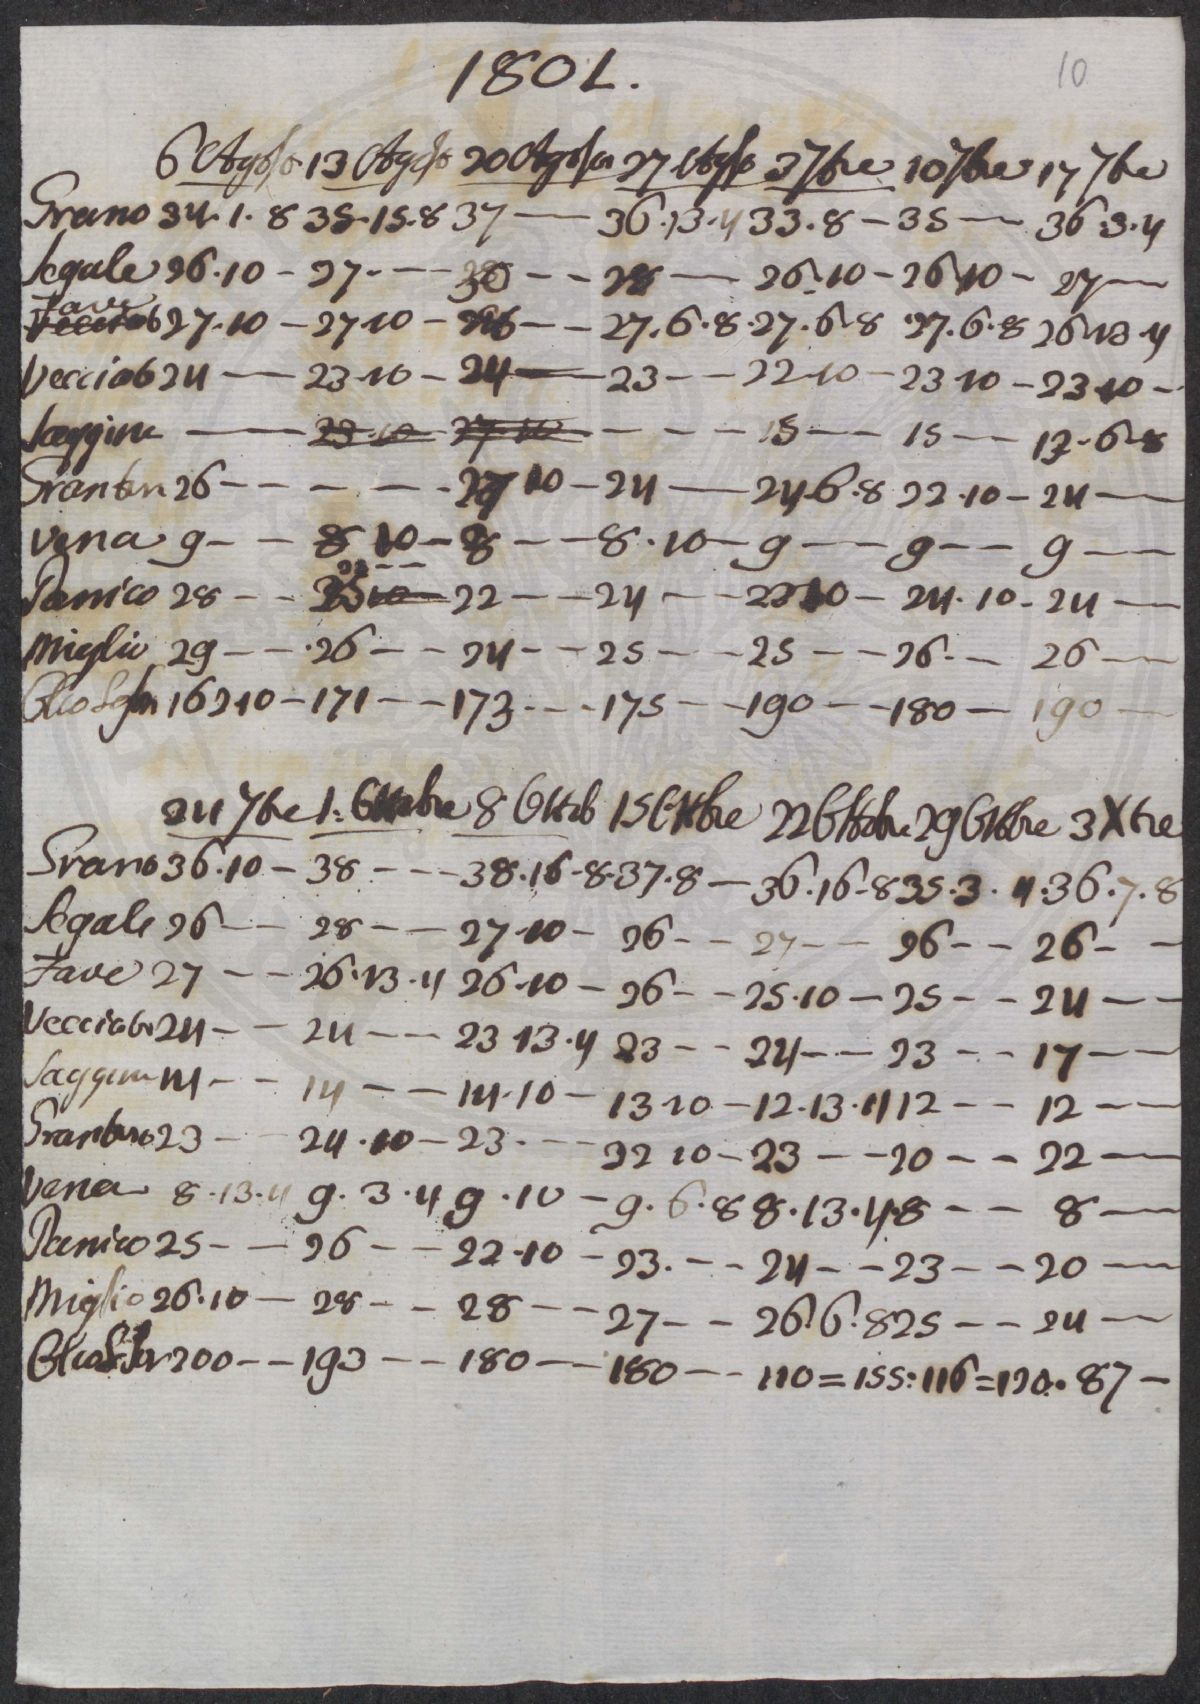 10
1801.
6 Agosto 13 Agosto 20 Agosto 27 Agosto 3 7bre 10 7bre 17 7bre
Grano 34.1.8 35.15.8 37 — 36.13.4 33.8 — 35 — 36.3.4
Segale 26.10 - 27. — — 28 — 26.10 - 26.10 - 27 —
Fave 27.10 — 27.10 — — 27.6.8. 27.6.8 27.6.8 26.13.4
Vecciato 24 — 23.10 — 24 — 23 — 22.10 — 23.10 — 23.10 —
Saggina — 23.10 27.10 — — — 15 — 15 — 12.6.8
Grantur 26 — — — — 27 10 — 24 — 24.6.8 22.10 — 24 —
Vena 9 — — 8 10 — 8 — — 8.10 — 9 — 9 — 9 —
Panico 28 — — 22 — 24 — 23 10 — 24.10 - 24 —
Miglio 29 — — 26 — — 24 — — 25 — 25 — — 26 — — 26 —
Olio 162 10 — 171 — — 173 — — 175 — — 190 — — 180 — 190 —
24 7bre 1. Ottobre 8 Ottob 15 Ottbre 22 Ottobre 29 Ottbre 3 Xbre
Grano 36.10 — 38 — — — 38.16.8. 37.8 — 36.16.8 35.3.4. 36.7.8
Segale 26 — — 28 — — 27.10 — 26 — — 27 — — 26 — — 26 — —
Fave 27 — — 26.13.4 26.10 — 26 — — 25.10 — 25 — — 24 — —
Vecciato 24 — — 24 — — 23 13.4 23 — — 24 — — 23 — — 17 — —
Saggina 14 — — 14 — — 14.10 — 13 10 — 12.13.4 12 — — 12 — —
Grantur 23 — — 24.10 — 23. — — 22 10 — 23 — — 20 — — 22 —
Vena 8.13.4 9.3.4 9.10 — 9.6.8 8.13.4 8 — — 8 —
Panico 25 — — 26 — — 22.10 — 23. — — 24 — — 23 — — 20 —
Miglio 26.10 — 28 — — 28 — — 27 — — 26.6.8 25 — — 24 —
Olio 200 — — 193 — — 180 — — 180 — — 110 = 155: 116 = 120. 87 —